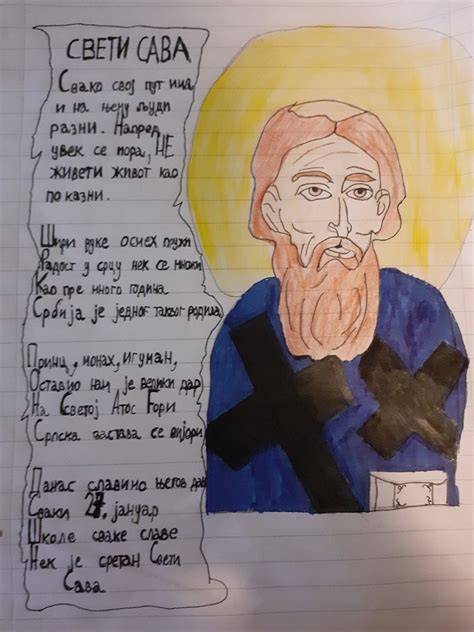 СВЕТИ САВА
Свако свој пут има
и на њему људи
разни. Напред
увек се мора, НЕ
живети живот као
по казни.
Шири руке осмех пружи
Радост у срцу нек се множи
Као пре много година
Србија је једног таквог родила
Принц, монах, игуман,
Оставио нам је велики дар
На Светој Атос Гори
Српска застава се вијори
Данас славимо његов дан
Сваки 27. јануар
Школе сваке славе
Нек је сретан Свети
Сава